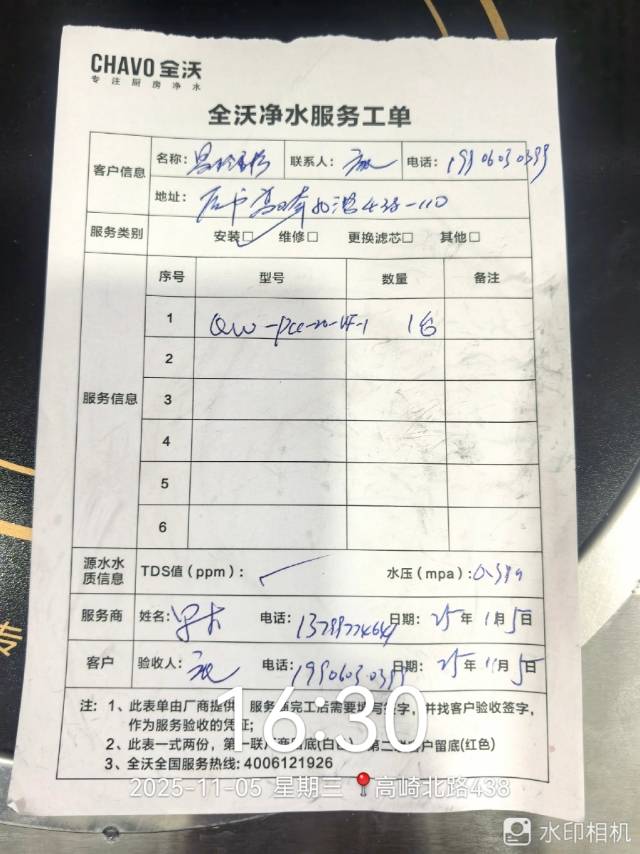 CHAVO 全沃
专注厨房净水
全沃净水服务工单
客户信息 名称: 联系人: 电话: 19906030399
地址: 438-110
服务类别 安装□✓ 维修□ 更换滤芯□ 其他□
服务信息 序号 型号 数量 备注
1 1台
2
3
4
5
6
源水水质信息 TDS值(ppm): 水压(mpa):
服务商 姓名: 电话: 日期: 25年11月5日
客户 验收人: 电话: 19906030399 日期: 25年11月5日
注: 1、此表单由厂商提供, 服务商完工后需要填写签字, 并找客户验收签字,
作为服务验收的凭证;
2、此表一式两份, 第一联厂商留底(白色) 第二联客户留底(红色)
3、全沃全国服务热线: 4006121926
16:30
2025-11-05 星期三 高崎北路438
水印相机